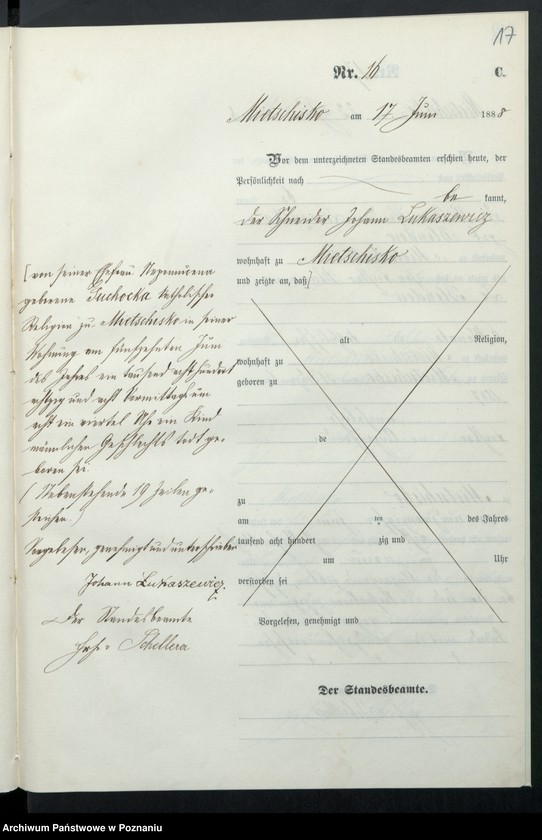 17
Nr. 16
C.
Mietschisko am 17 Juni 1888
Vor dem unterzeichneten Standesbeamten erschien heute, der
Persönlichkeit nach
be kannt,
der Schneider Johann Lukaszewicz
wohnhaft zu Mietschisko
und zeigte an, daß]
[von seiner Ehefrau Nepomucena
geborene Suchocka katholischer
Religion zu Mietschisko in seiner
Wohnung am fünfzehnten Juni
des Jahres ein tausend acht hundert
achtzig und acht Vormittags um
acht ein viertel Uhr ein Kind
männlichen Geschlechts todt ge-
boren sei.
(Nebenstehende 19 Zeilen ge-
strichen.
Vorgelesen, genehmigt und unterschrieben
Johann Lukaszewicz
Der Standesbeamte
Schellera
alt Religion,
wohnhaft zu
geboren zu
de
zu
am ten des Jahres
tausend acht hundert zig und
um Uhr
verstorben sei
Vorgelesen, genehmigt und
Der Standesbeamte.
Archiwum Państwowe w Poznaniu